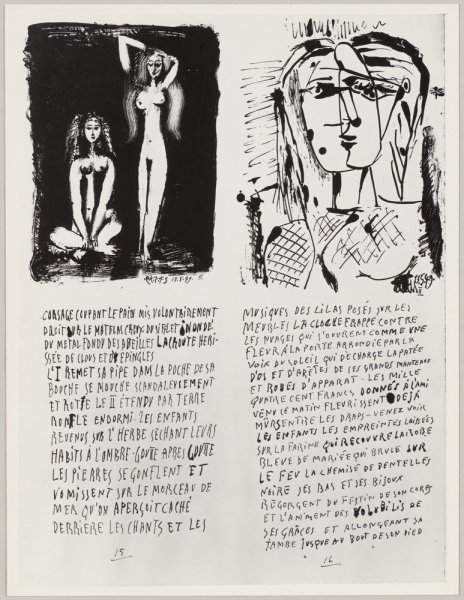 CORSAGE COUPANT LE PAIN MIS VOLONTAIREMENT
DROIT SUR LE MATELOM CREUX DU SIBLET INONDÉ
DU METAL FONDU DES ABEILLES LA CROUTE HERI-
SSÉE DE CLOUS ET D'EPINGLES
L'I REMET SA PIPE DANS LA POCHE DE SA
BOUCHE SE MOUCHE SCANDALEUSEMENT
ET ROTE LE II ÉTENDU PAR TERRE
RONFLE ENDORMI. LES ENFANTS
REVENUS SUR L'HERBE SÉCHANT LEURS
HABITS A L'OMBRE. GOUTE APRES GOUTE
LES PIERRES SE GONFLENT ET
VOMISSENT SUR LE MORCEAU DE
MER QU'ON APERÇOIT CACHÉ
DERRIÈRE LES CHANTS ET LES
15
MUSIQUES DES LILAS POSÉS SUR LES
MEUBLES LA CLOCHE FRAPPE CONTRE
LES NUAGES QUI S'OUVRENT COMME UNE
FLEUR A LA PORTE ARRONDIE PAR LA
VOIX DU SOLEIL QUI DÉCHARGE LA PATÉE
D'OS ET D'ARÊTES DE SES GRANDS MANTEAUX
ET ROBES D'APPARAT. LES MILLE
QUATRE CENT FRANCS DONNÉS A L'AMI
VENU LE MATIN FLEURISSENT DÉJÀ
MURS ENTRE LES DRAPS - VENEZ VOIR
LES ENFANTS LES EMPREINTES LAISSÉES
SUR LA FARINE QUI RECOUVRE LA ROBE
BLEUE DE MARIÉE QUI BRULE SUR
LE FEU LA CHEMISE DE DENTELLES
NOIRE SES BAS ET SES BIJOUX
REGORGENT DU FESTIN DE SON CORPS
ET L'ANIMENT DES VOLUBILIS DE
SES GRÂCES ET ALLONGEANT SA
JAMBE JUSQUE AU BOUT DE SON PIED
16